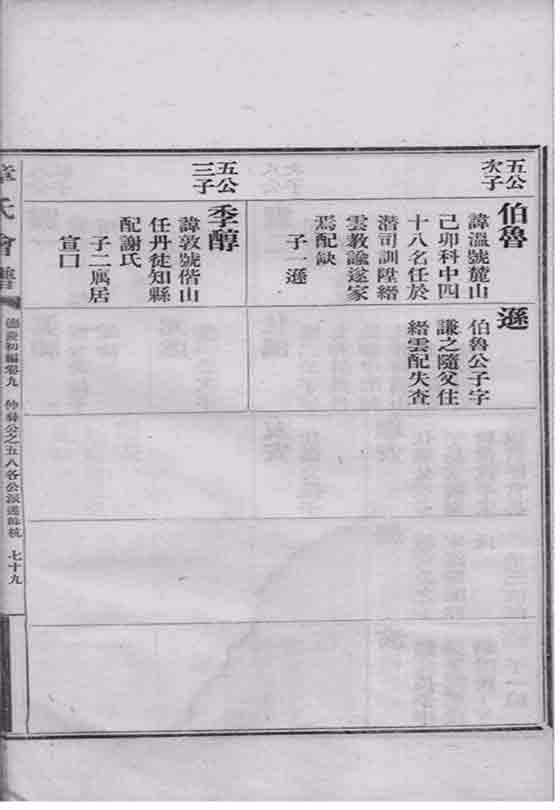 五公
次子
伯魯
諱溫號麓山
己卯科中四
十八名任於
潛司訓陞縉
雲教諭遂家
焉配缺
子一遜
遜
伯魯公子字
謙之隨父住
縉雲配失查
五公
三子
季醇
諱敦號偕山
任丹徒知縣
配謝氏
子二厲居
宣口
章氏會譜
德慶初編卷九
仲彝公之五八各公派遜時杭
七十九